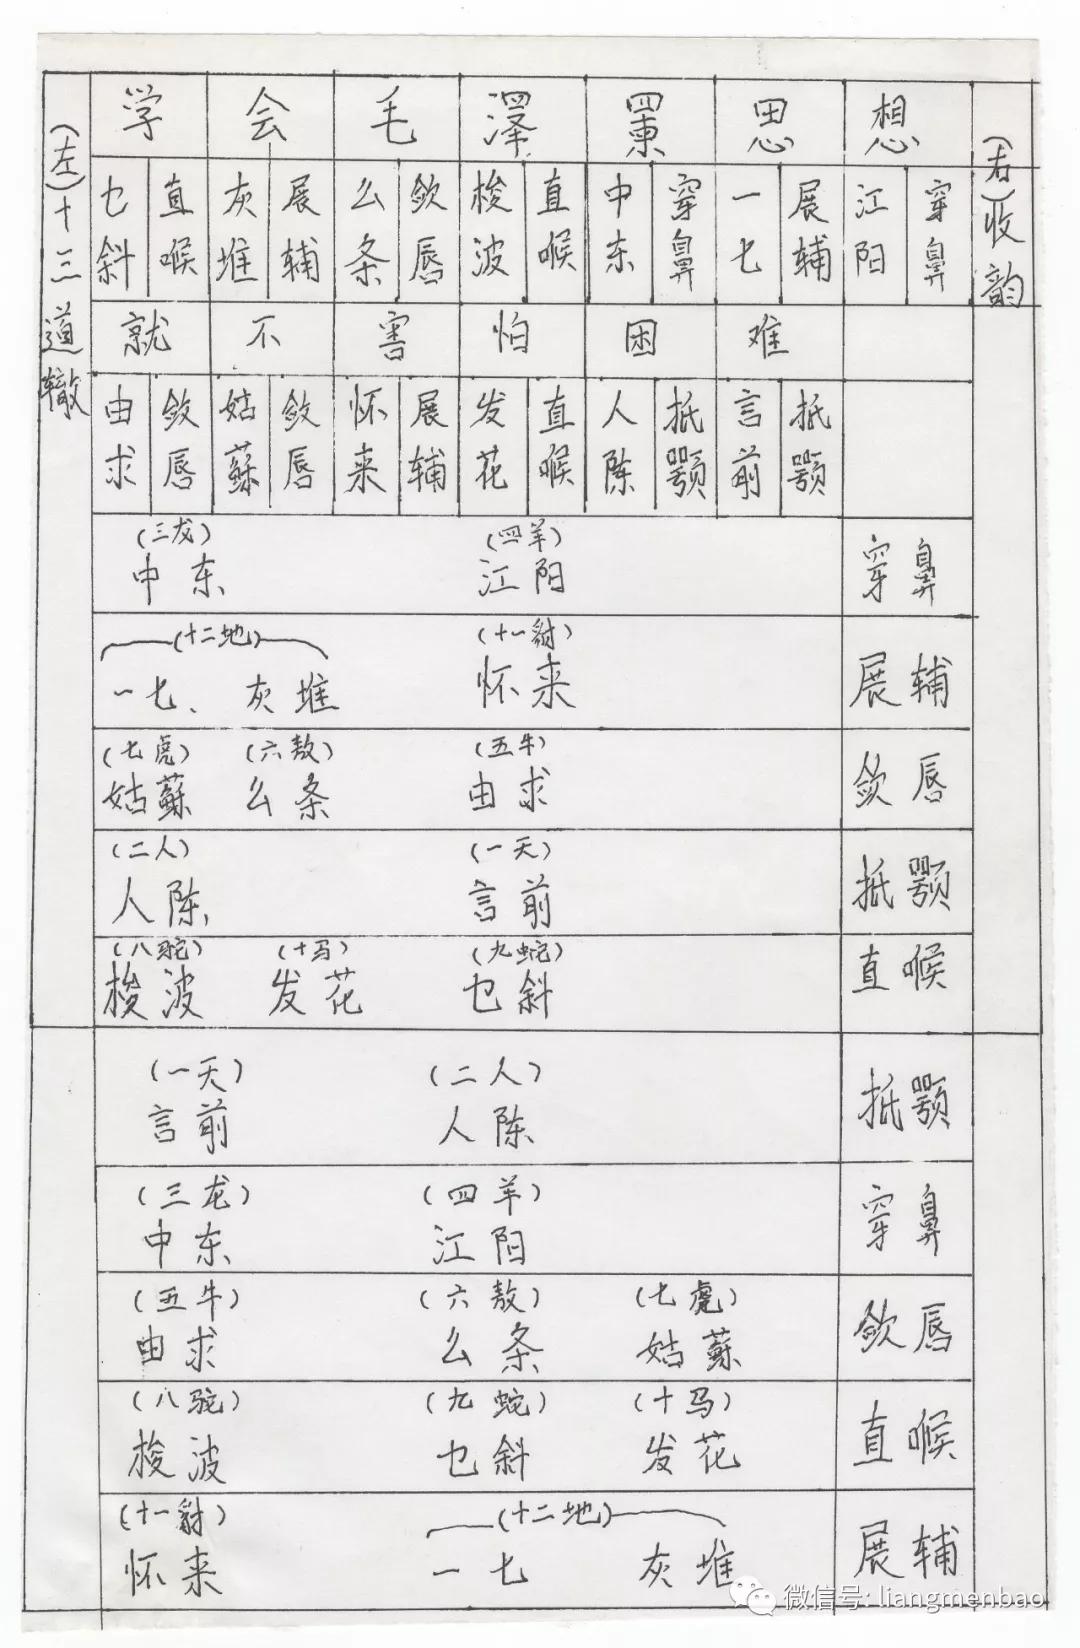 (左)十三道辙
(右)收韵
学 会 毛 泽 東 思 想
乜斜 直喉 灰堆 展辅 么条 敛唇 梭波 直喉 中东 穿鼻 一七 展辅 江阳 穿鼻
就 不 害 怕 困 难
由求 敛唇 姑蘇 敛唇 怀来 展辅 发花 直喉 人陈 抵颚 言前 抵颚
(三龙) (四羊)
中东 江阳 穿鼻
(十二地) (十一豺)
一七、灰堆 怀来 展辅
(七虎) (六敖) (五牛)
姑蘇 么条 由求 敛唇
(二人) (一天)
人陈 言前 抵颚
(八驼) (十马) (九蛇)
梭波 发花 乜斜 直喉
(一天) (二人)
言前 人陈 抵颚
(三龙) (四羊)
中东 江阳 穿鼻
(五牛) (六敖) (七虎)
由求 么条 姑蘇 敛唇
(八驼) (九蛇) (十马)
梭波 乜斜 发花 直喉
(十一豺) (十二地)
怀来 一七 灰堆 展辅
微信号: liangmenbao